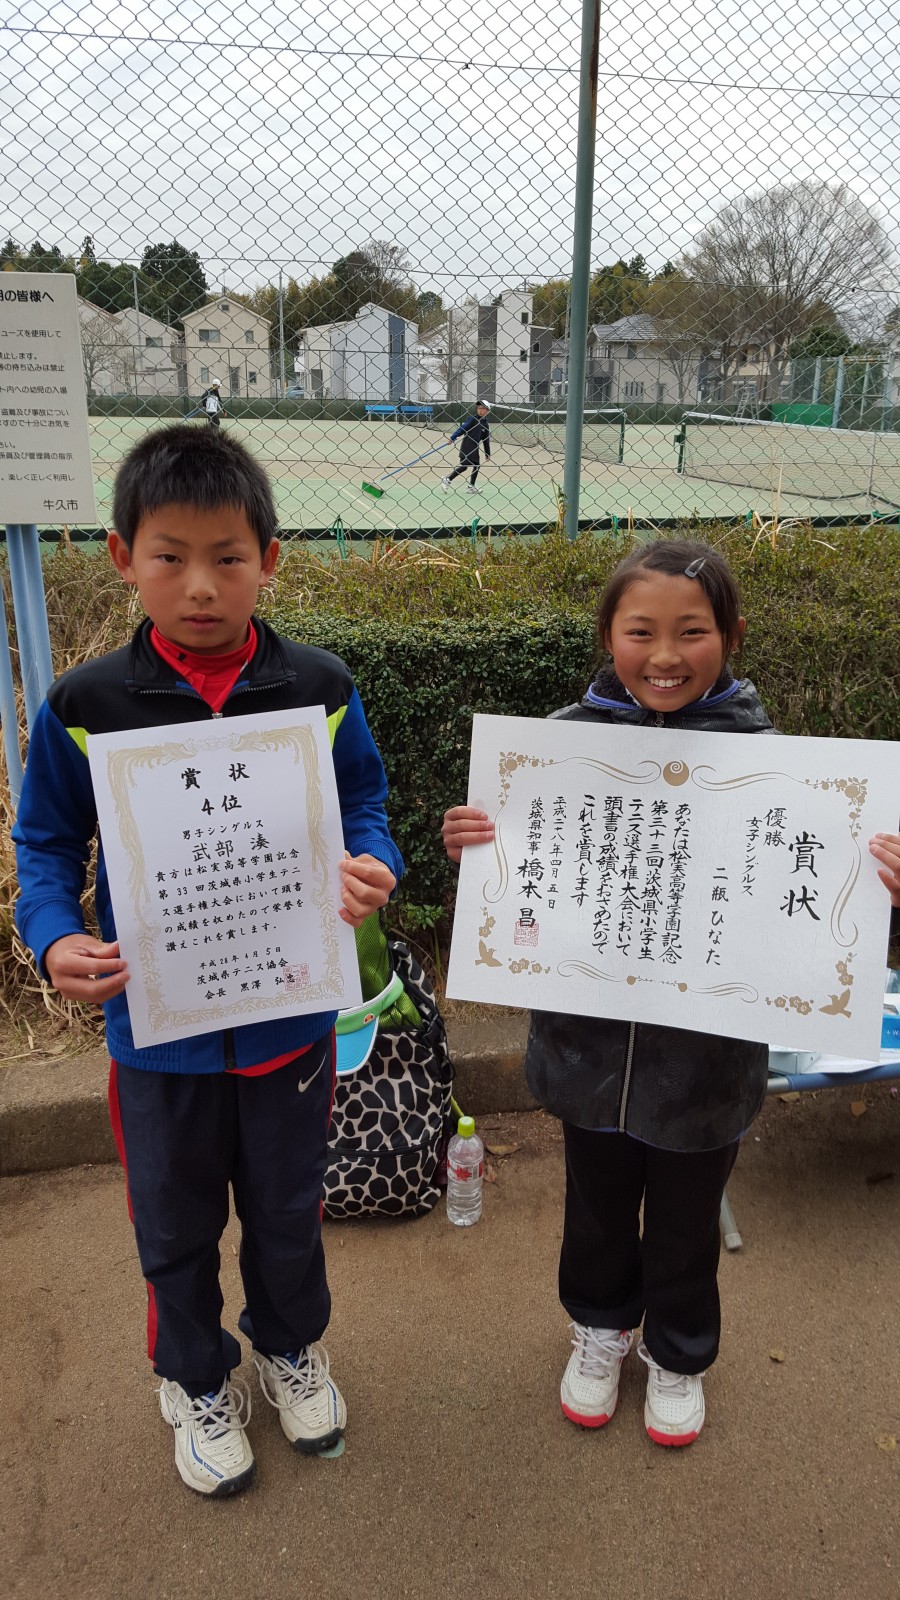 用の皆様へ
ューズを使用して
禁止します。
等の持ち込みは禁止
ト内への幼児の入場
盗難及び事故につい
ますので十分にお気を
さい。
係員及び管理員の指示
、楽しく正しく利用し
牛久市
賞状
4位
男子シングルス
武部 湊
貴方は松実高等学園記念
第33回茨城県小学生テニ
ス選手権大会において頭書
の成績を収めたので栄誉を
讃えこれを賞します.
平成28年4月5日
茨城県テニス協会
会長 黒澤 弘忠
賞状
優勝
女子シングルス
二瓶ひなた
あなたは松実高等学園記念
第三十三回茨城県小学生
テニス選手権大会において
頭書の成績をおさめたので
これを賞します
平成二十八年四月五日
茨城県知事 橋本昌